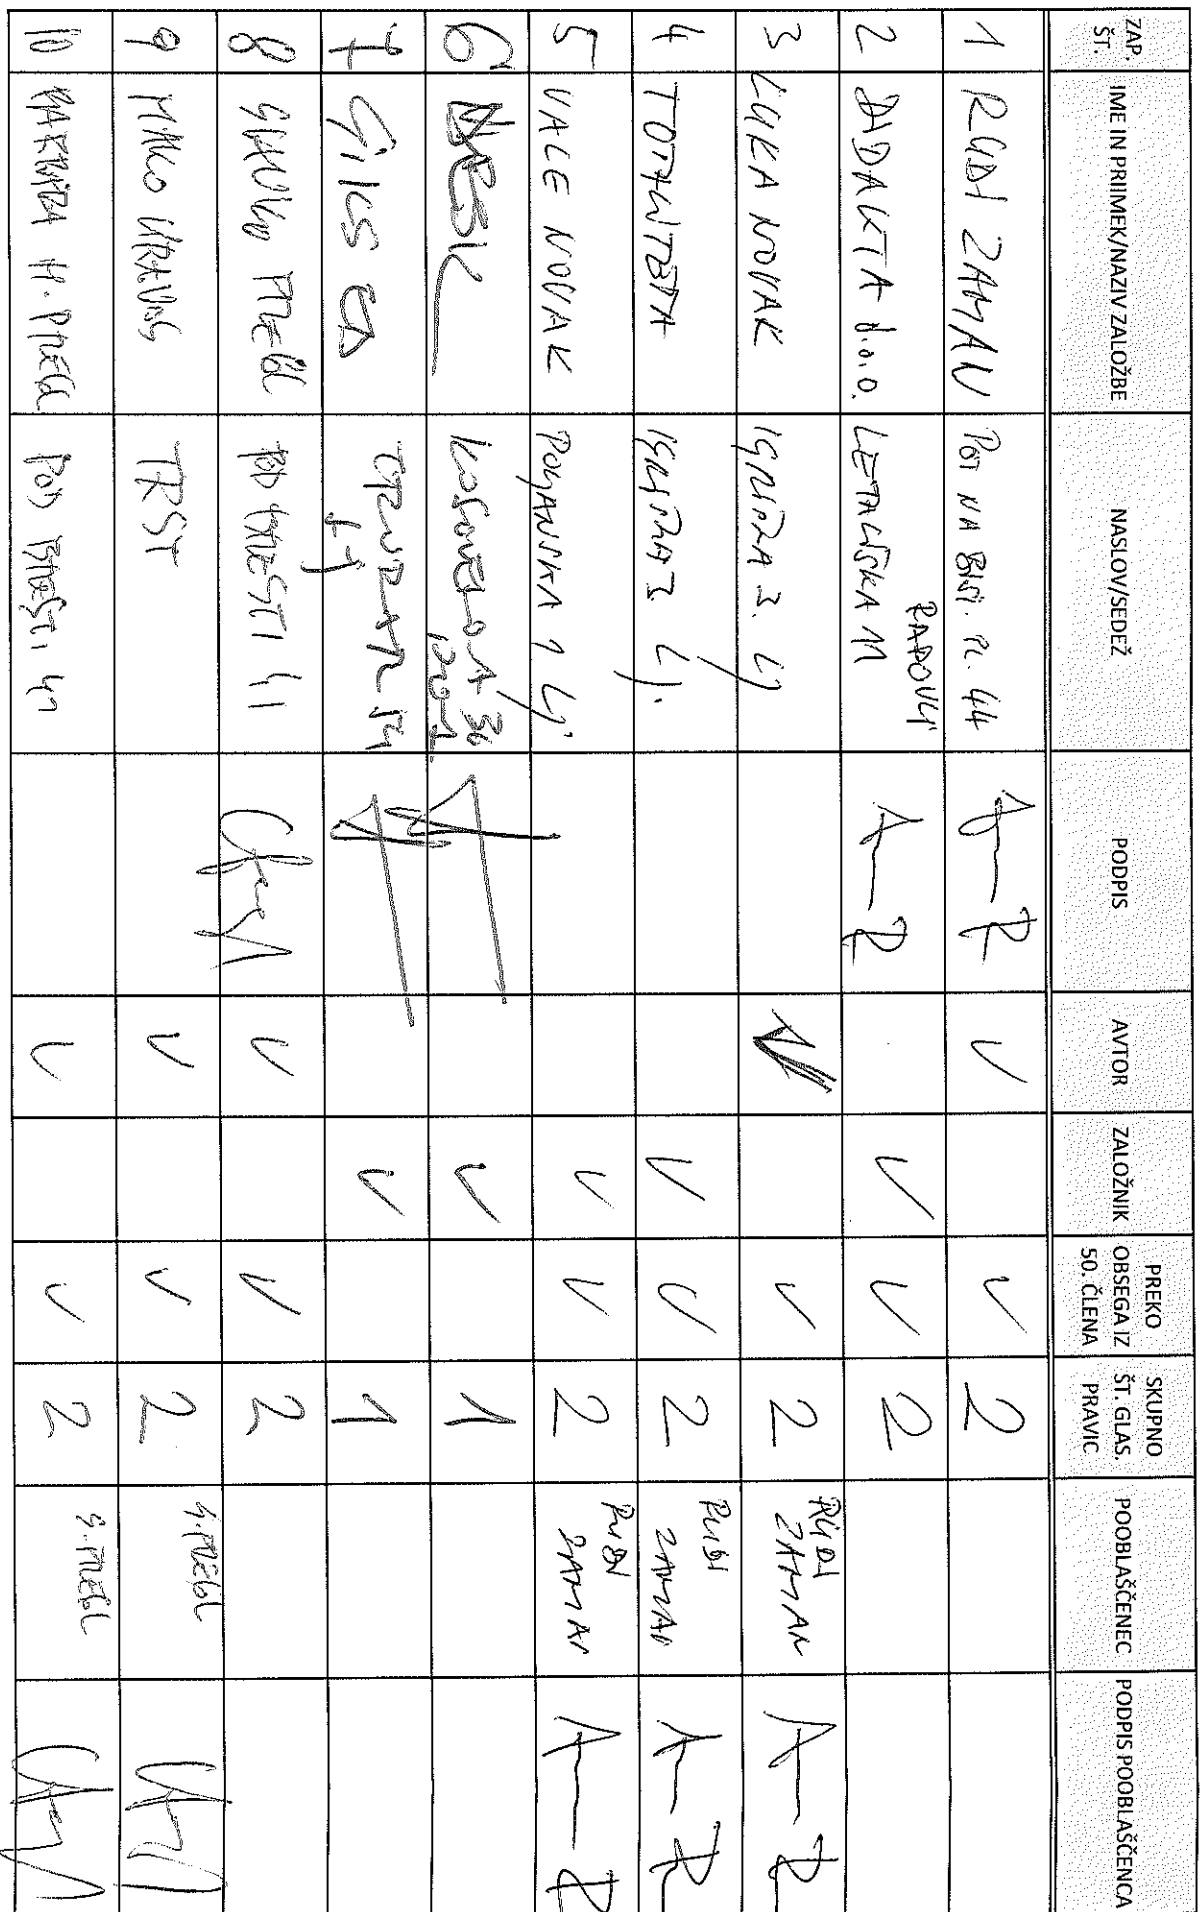 ZAP. ŠT. IME IN PRIIMEK/NAZIV ZALOŽBE NASLOV/SEDEŽ PODPIS AVTOR ZALOŽNIK PREKO OBSEGA IZ 50. ČLENA SKUPNO ŠT. GLAS. PRAVIC POOBLAŠČENEC PODPIS POOBLAŠČENCA
1 RUDI ZAMAN POT NA 44 V V 2
2 DIDAKTA d.o.o. LETALIŠKA 11 RADOVLJ V V 2
3 LUKA NOVAK IGRIŠKA 3. LJ V 2 RUDI ZAMAN
4 IGRIŠKA 3. LJ. V V 2 RUDI ZAMAN
5 VALE NOVAK POLJANSKA 1 LJ V V 2 RUDI ZAMAN
6 KOSOVELOVA 36 V 1
7 14 LJ V 1
8 SLAVKO PREGL POD BRESTI 41 V V 2
9 MIKO KRAVOS TRST V V 2 S. PREGL
10 BARBARA H. PREGL POD BRESTI 41 V V 2 S. PREGL